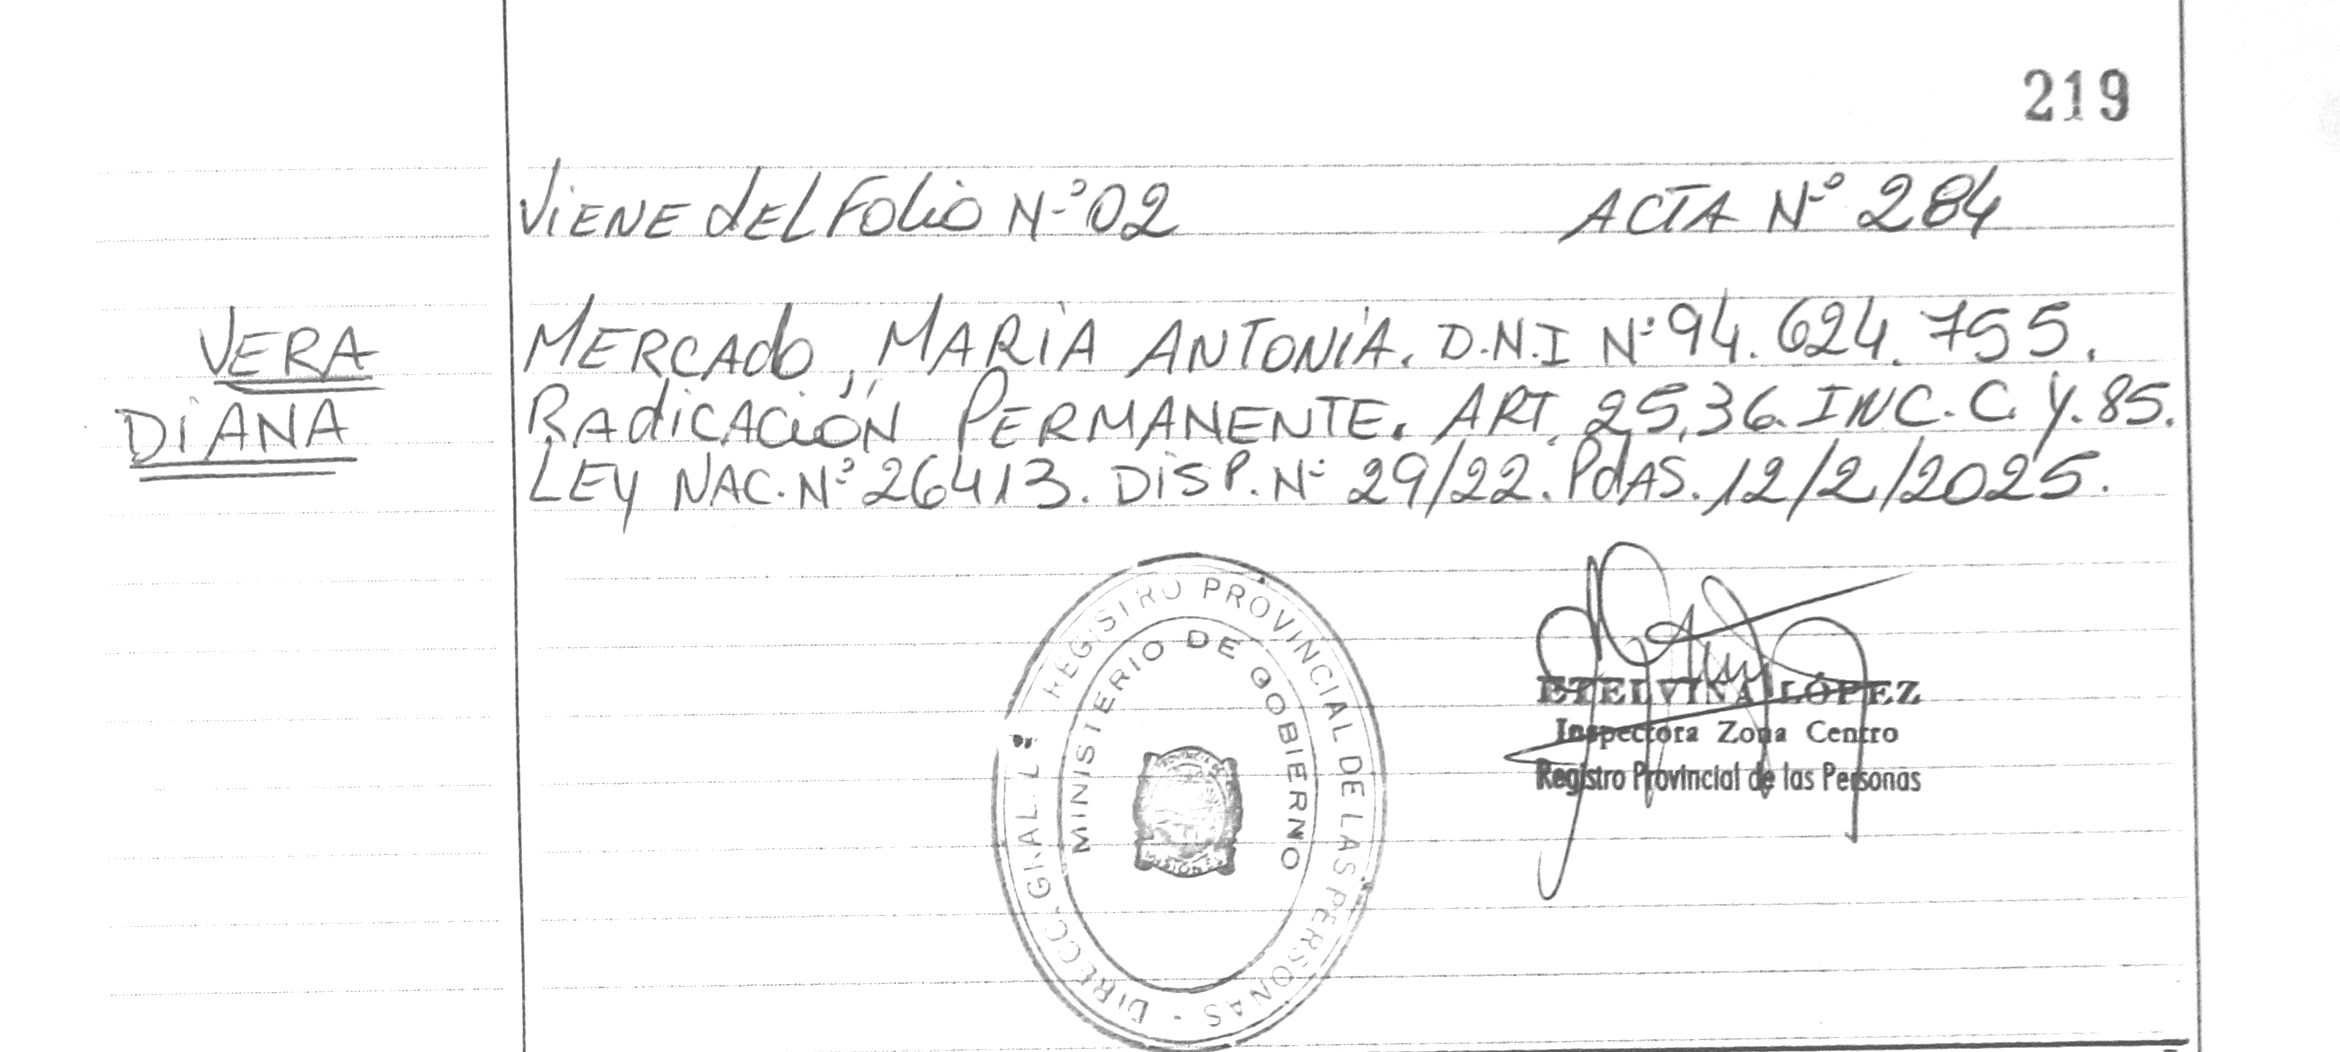 219
Viene del Folio N-º 02 ACTA Nº 284
VERA
DIANA
MERCAdo, MARIA ANTONIA. D.N.I Nº 94.624.755.
RAdicACióN PERMANENTE. ART. 25,36. INC. C. Y. 85.
LEY NAC. Nº 26413. DISP. Nº 29/22. PdAS. 12/2/2025.
DIRECC. GRAL. REGISTRO PROVINCIAL DE LAS PERSONAS -
MINISTERIO DE GOBIERNO
ETELVINA LÓPEZ
Inspectora Zona Centro
Registro Provincial de las Personas